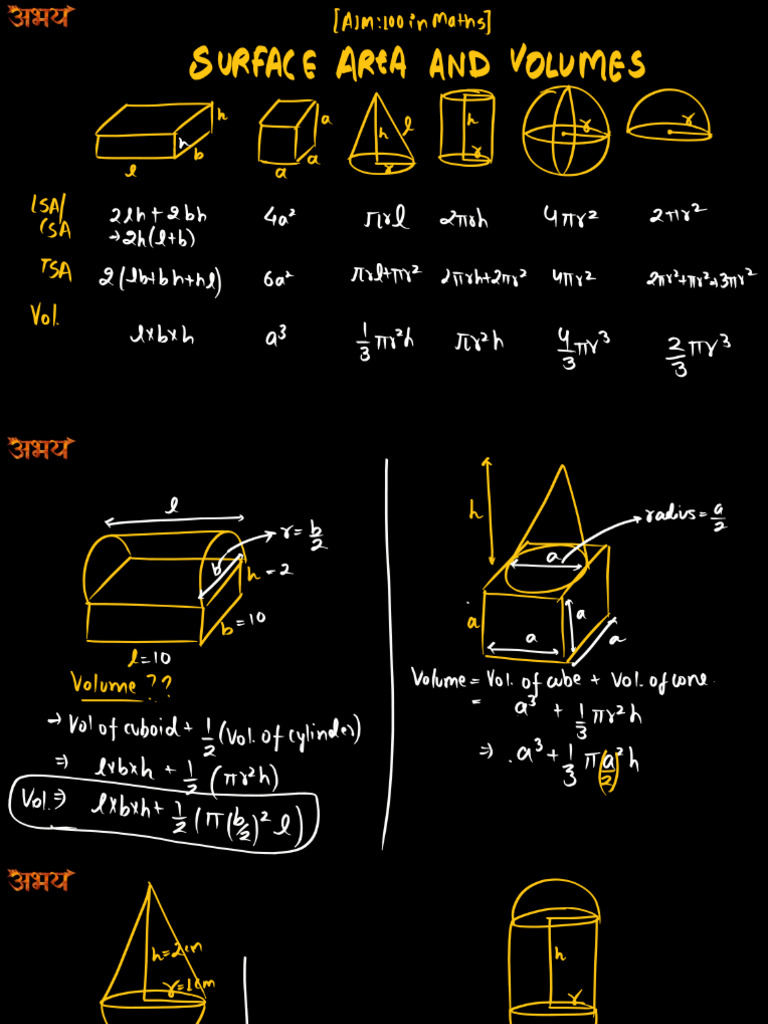 अभय
[AIM:100 in Maths]
SURFACE AREA AND VOLUMES
h h b l
a a a
h l r
h r
r
r
LSA/ CSA
2lh + 2bh
→ 2h(l+b)
4a²
πrl
2πrh
4πr²
2πr²
TSA
2(lb+bh+hl)
6a²
πrl+πr²
2πrh+2πr²
4πr²
2πr²+πr²→3πr²
Vol.
l×b×h
a³
1/3 πr²h
πr²h
4/3 πr³
2/3 πr³
अभय
l
r = b/2
b
h = 2
b = 10
l = 10
Volume ??
→ Vol of cuboid + 1/2 (Vol. of cylinder)
⇒ l×b×h + 1/2 (πr²h)
Vol. ⇒ l×b×h + 1/2 (π(b/2)² l)
h
radius = a/2
a
a
a
a
a
Volume = Vol. of cube + Vol. of cone.
= a³ + 1/3 πr²h
⇒ a³ + 1/3 π(a/2)² h
अभय
h=2cm
r=1cm
h
r